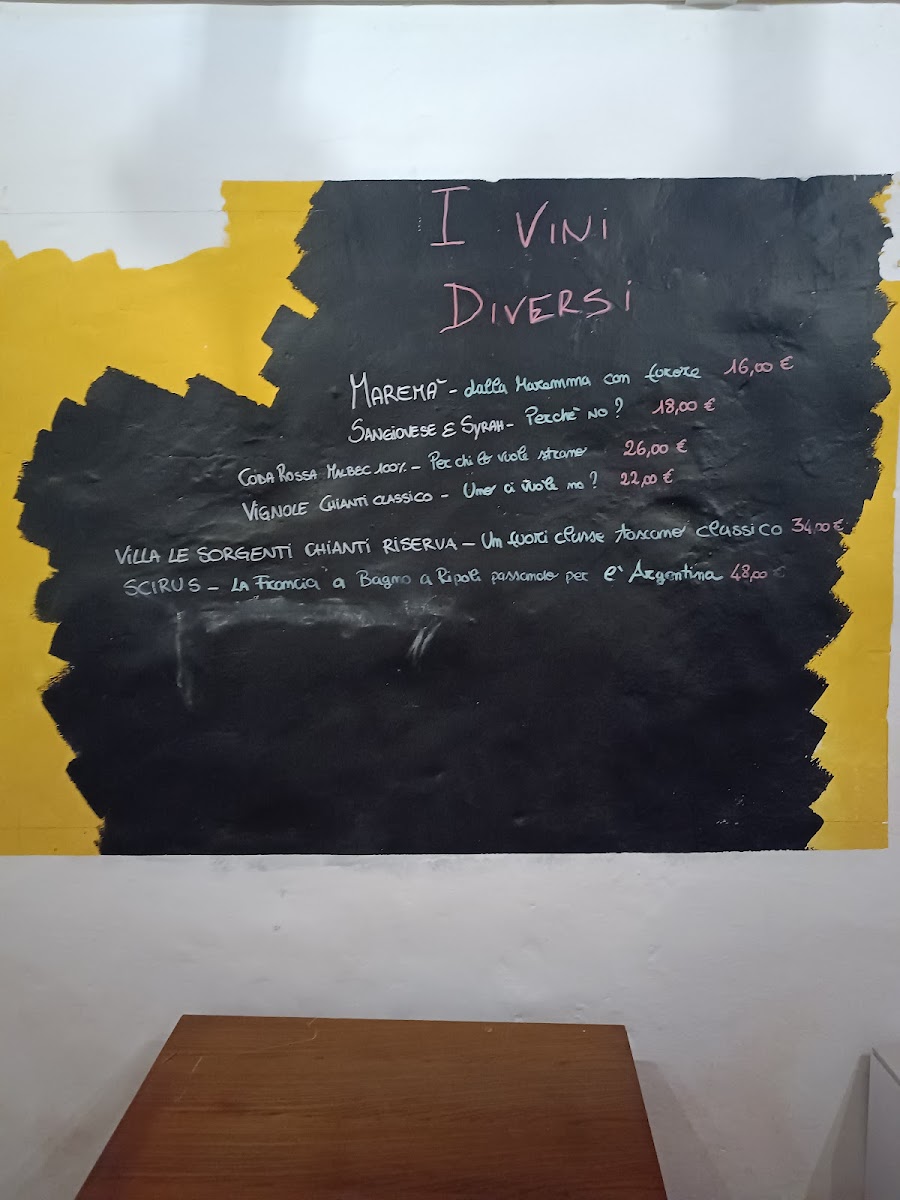 I VINI
DIVERSI
MAREMA' - dalla Maremma con furore 16,00 €
SANGIOVESE E SYRAH - Perchè no? 18,00 €
CODA ROSSA MALBEC 100% - Per chi lo vuole strano 26,00 €
VIGNOLE CHIANTI CLASSICO - Uno ci vuole no? 22,00 €
VILLA LE SORGENTI CHIANTI RISERVA - Un fuori classe toscano classico 34,00 €
SCIRUS - LA Francia a Bagno a Ripoli passando per l' Argentina 48,00 €